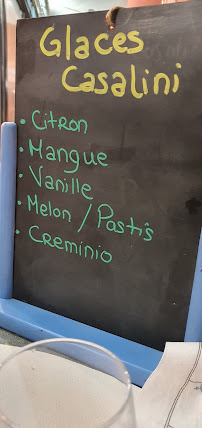 Glaces
Casalini
• Citron
• Mangue
• Vanille
• Melon / Pastis
• Creminio